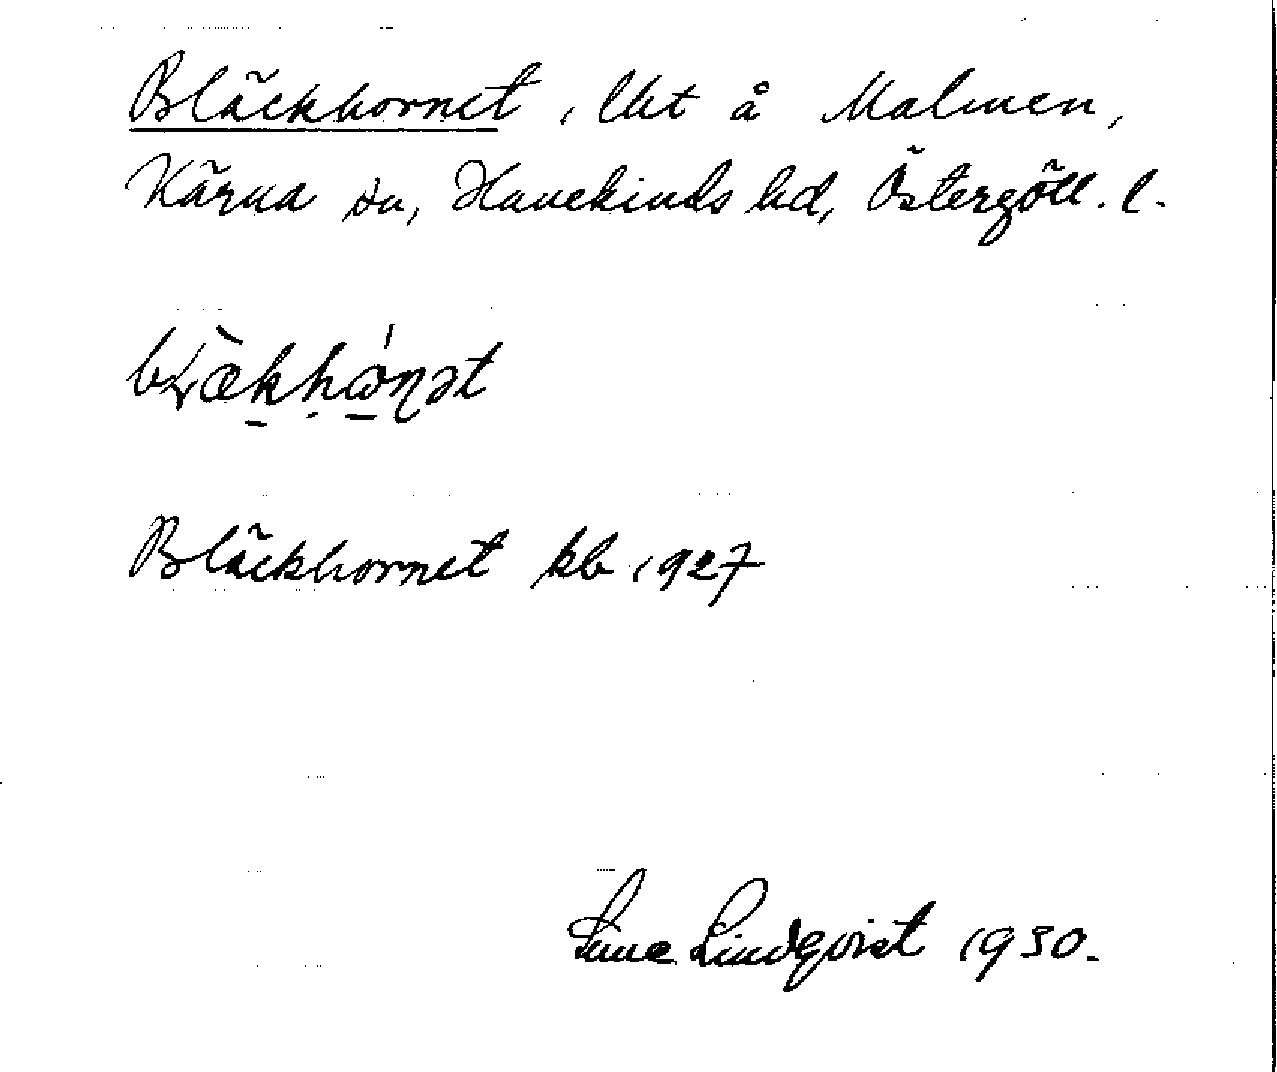 Bläckhornet, lht å Malmen,
Kärna sn, Hanekinds hd, Östergötl. l.
Bläckhornet kb 1927
Sune Lindqvist 1930.